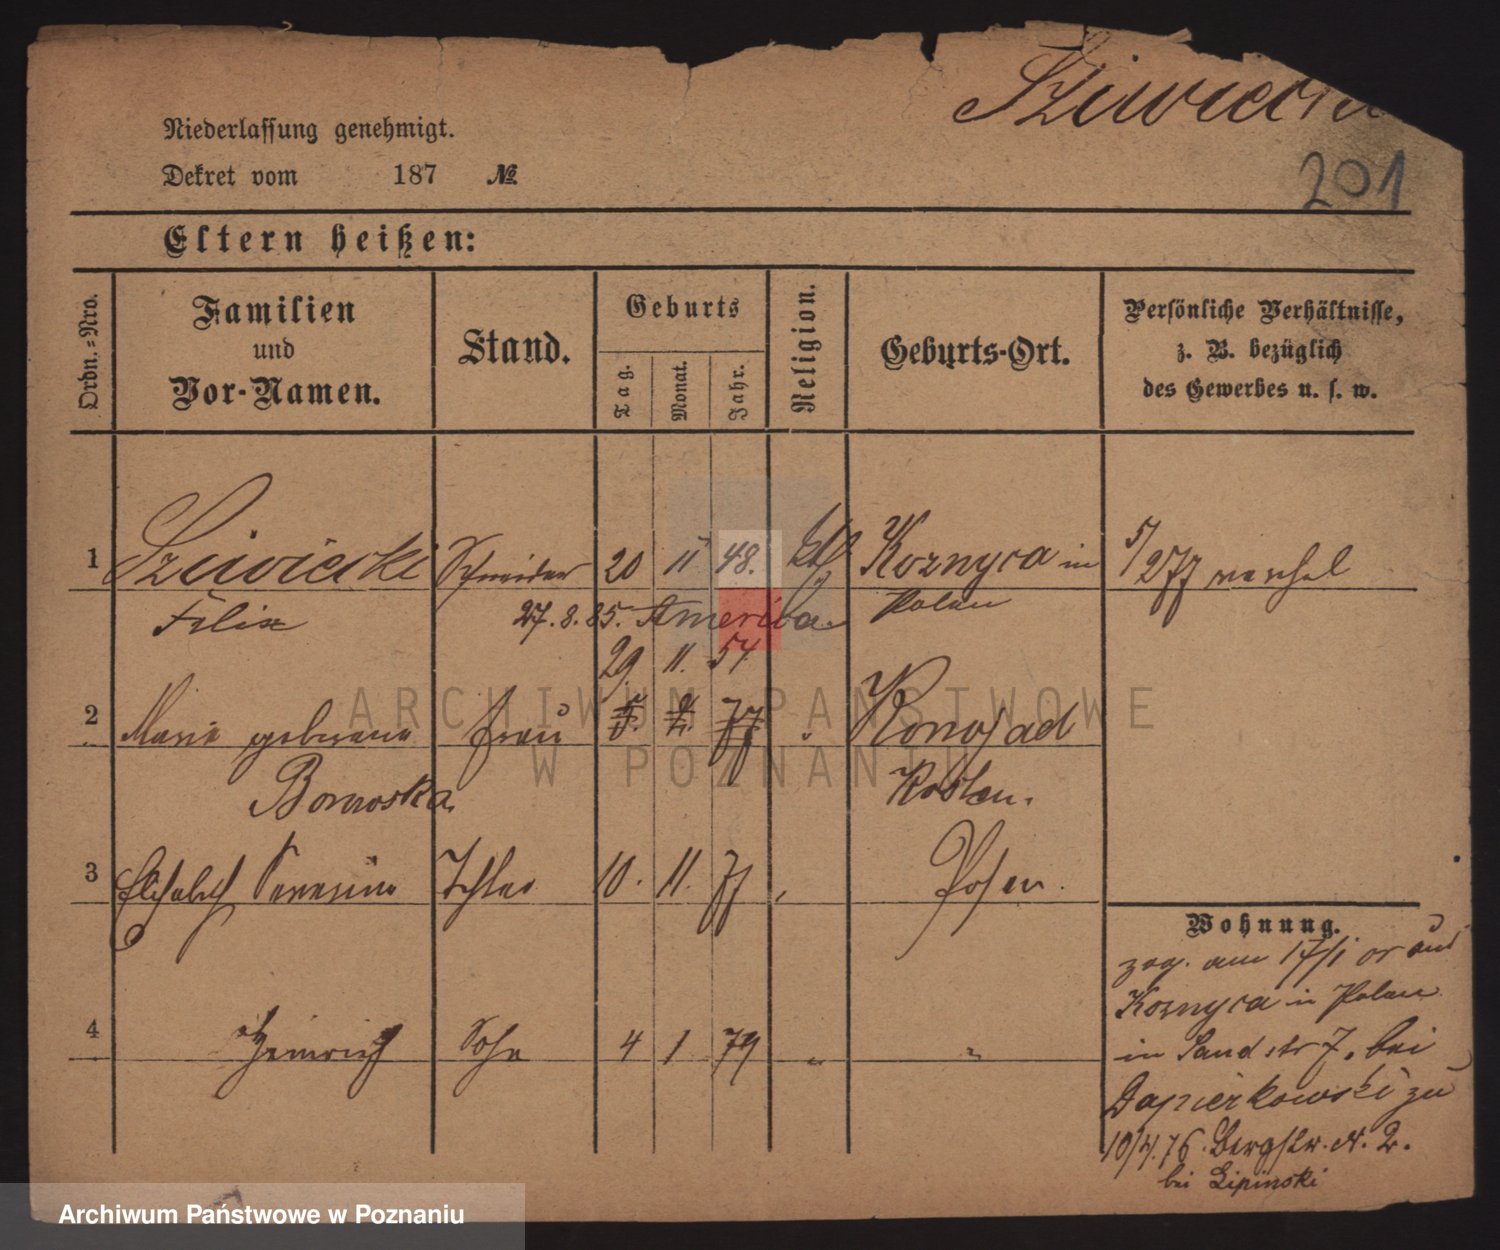 Niederlassung genehmigt.
Dekret vom 187 №
201
Eltern heißen:
Ordn.-Nro.
Familien und Vor-Namen.
Stand.
Geburts
Tag.
Monat.
Jahr.
Religion.
Geburts-Ort.
Persönliche Verhältnisse,
z. B. bezüglich
des Gewerbes u. s. w.
1 Schneider 20 11 48. kth in 5/2 77
Felix Polen
27.8.85. America.
29. 11. 54
2 Marie geborene Frau Konosad
Borowska Kosten.
3 Elisabeth Severine Tchter 10. 11. 77 Posen.
4 Heinrich Sohn 4 1 79 " "
Wohnung.
zog. am 17/1 cr aus
in Polen
in Sandstr 7. bei
Dapierkowski zu
10/4.76. Bergstr. N. 2.
bei Lipinski
ARCHIWUM PAŃSTWOWE
W POZNANIU
Archiwum Państwowe w Poznaniu